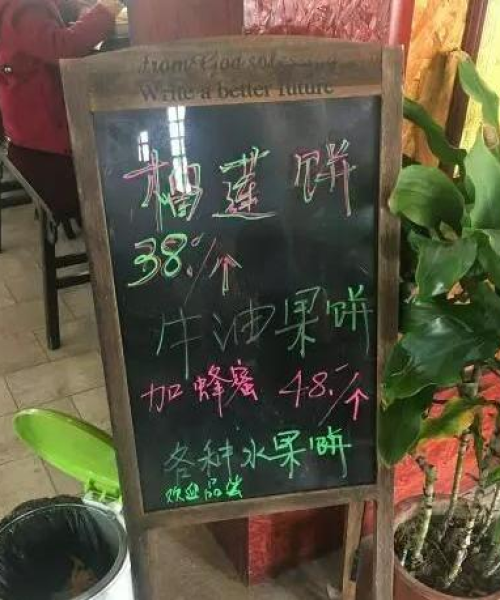 from God
Write a better future
榴莲饼
38./个
牛油果饼
加蜂蜜 48./个
各种水果饼
欢迎品尝